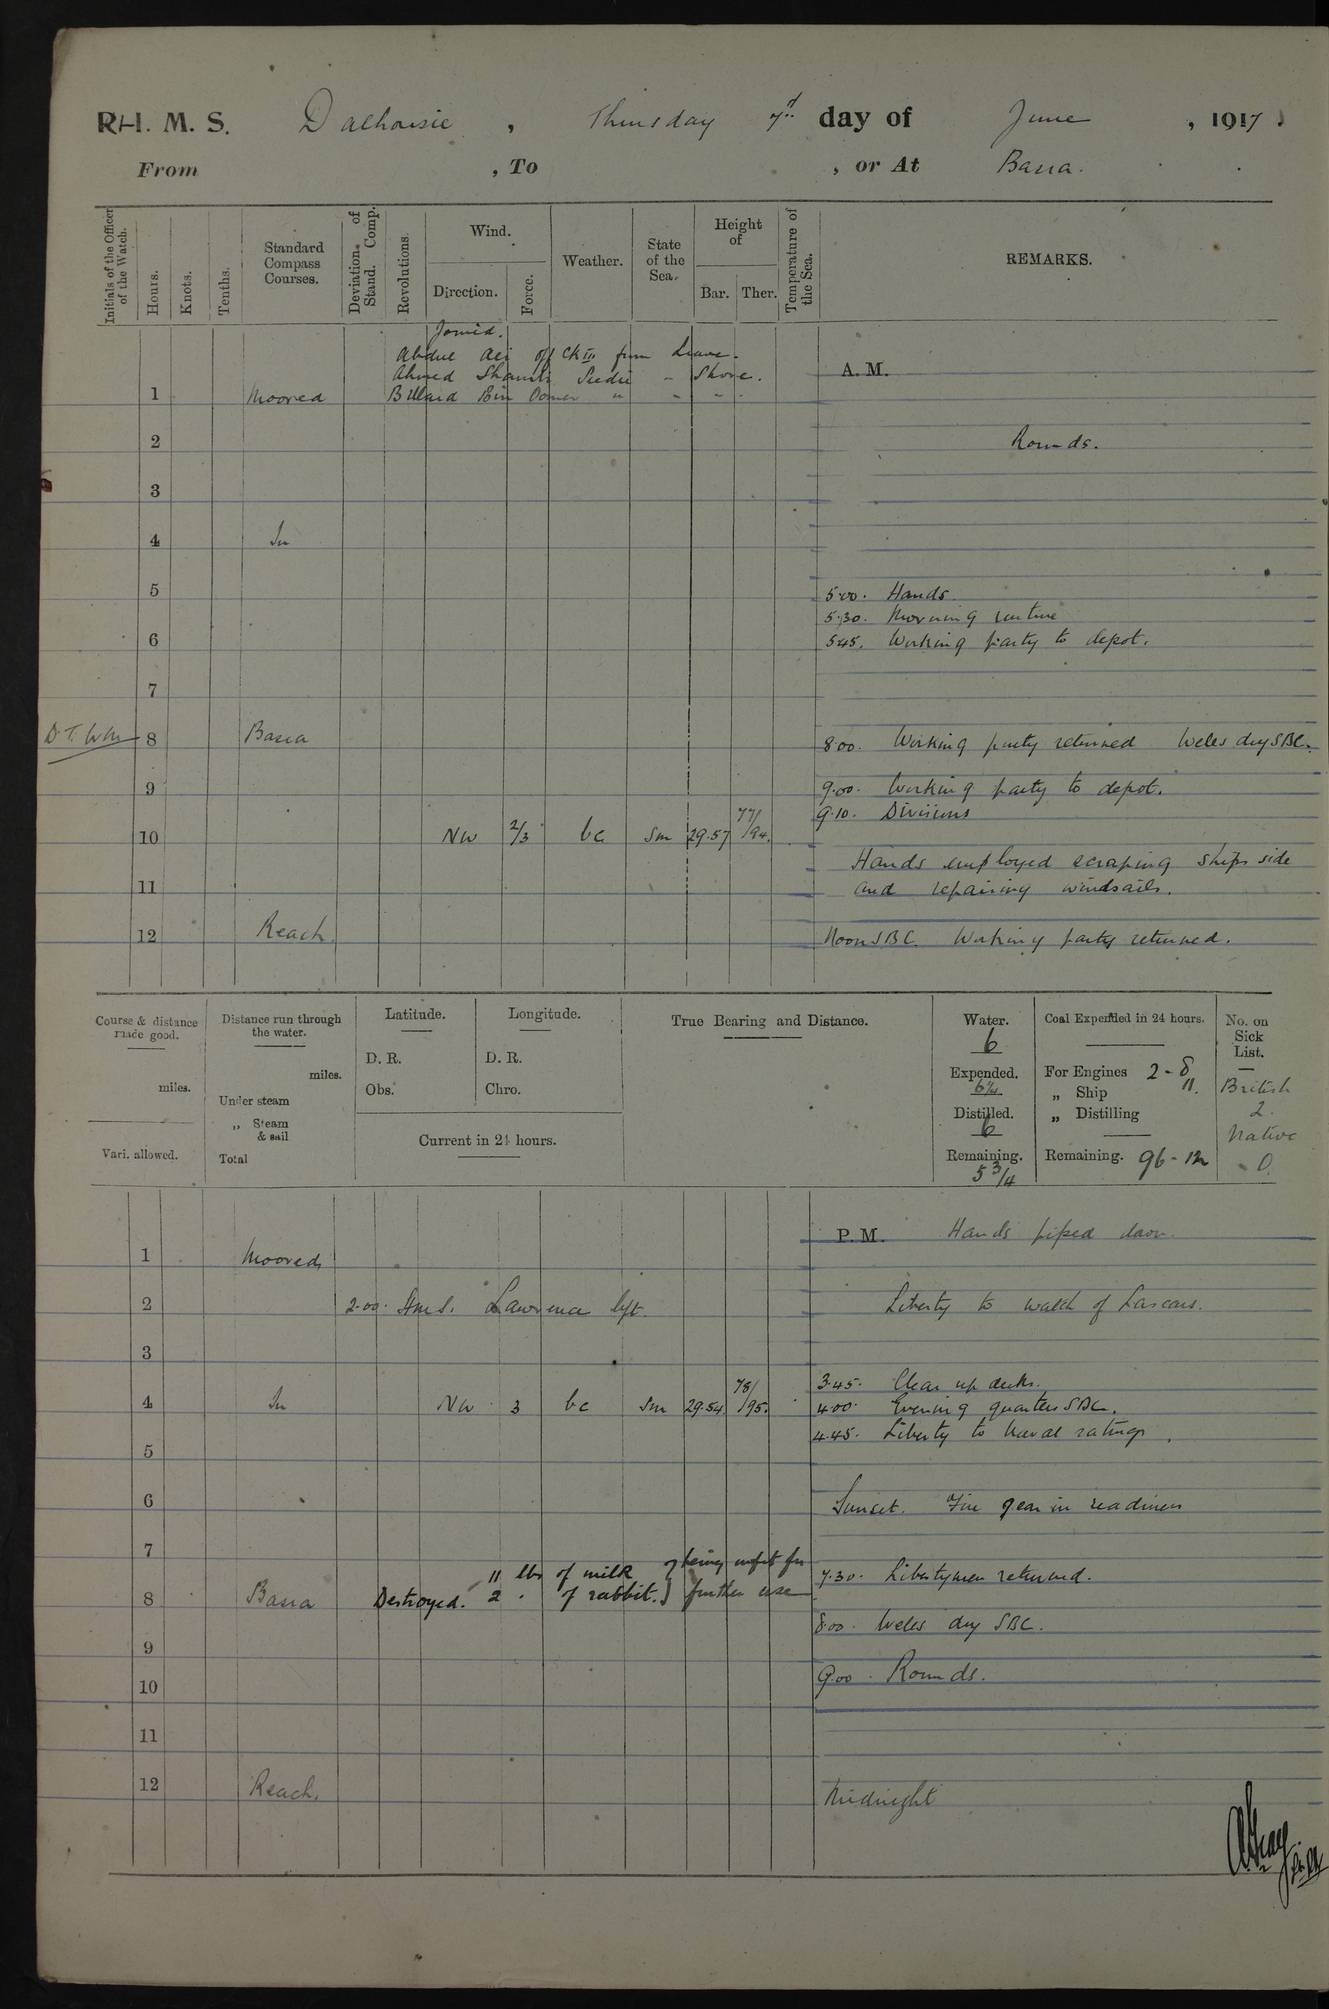 R.I.M.S. Dalhousie, Thursday 7th day of June, 1917.
From , To , or At Basra.
Initials of the Officer of the Watch. Hours. Knots. Tenths. Standard Compass Courses. Deviation of Stand. Comp. Revolutions. Wind. Direction. Force. Weather. State of the Sea. Height of Bar. Ther. Temperature of the Sea. REMARKS.
Joined.
Abdul Ali off Ck III from Leave.
Ahmed Shambi Seedie - Shore.
A. M.
1 Moored Billard Bin Oomer " " "
2 Rounds.
3
4 In
5 5.00. Hands
5.30. Morning routine
6 5.45. Working party to depot.
7
8 Basra 8.00. Working party returned Wells dry SBC.
9 9.00. Working party to depot.
9.10. Divisions
10 NW 2/3 bc Sm 29.57 77/94.
Hands employed scraping ships side
11 and repairing windsails.
12 Reach. Noon SBC. Working party returned.
Course & distance made good. miles. Vari. allowed.
Distance run through the water. miles. Under steam " Steam & sail Total
Latitude. D. R. Obs.
Longitude. D. R. Chro.
Current in 24 hours.
True Bearing and Distance.
Water. 6
Expended. 6¼
Distilled. 6
Remaining. 5 3/4
Coal Expended in 24 hours.
For Engines 2 - 8
" Ship 11.
" Distilling
Remaining. 96 - 12
No. on Sick List.
British
2.
Native
0.
P. M. Hands piped down.
1 Moored
2 2.00. HMS. Lawrence left. Liberty to watch of Lascars.
3
3.45. Clear up decks.
4 In NW 3 bc Sm 29.54 78/95. 4.00. Evening quarters SBC.
4.45. Liberty to Naval ratings.
5
6 Sunset. Fire gear in readiness
7
11 lbs of milk } being unfit for
7.30. Libertymen returned.
8 Basra Destroyed. 2 " of rabbit. } further use
8.00. Wells dry SBC.
9
9.00. Rounds.
10
11
12 Reach. Midnight